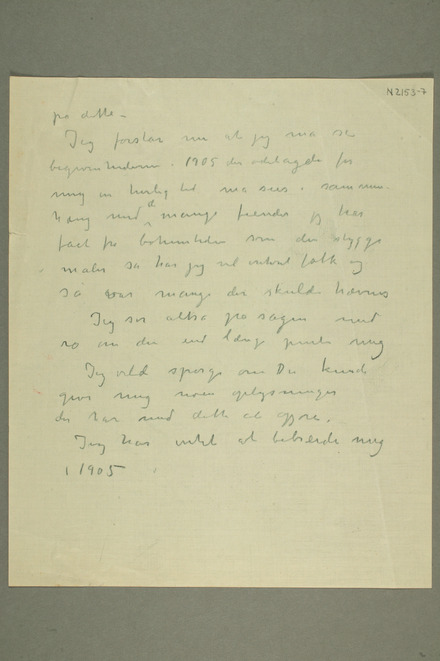 N2153-7
på dette –
Jeg forstår nu at jeg må se
begivenhederne i 1905 der ødelagde for
mig en herlig tid må sees i sammen-
hæng med at mange fiender jeg har
fået på
måder så har jeg vel folk og
så var mange der skulde hævnes
Jeg ser altså på sagen med
ro om den end længe mig
Jeg vilde spørge om Du kunde
give mig nogen oplysninger
der har med dette at gjøre.
Jeg har intet at bebreide mig
i 1905